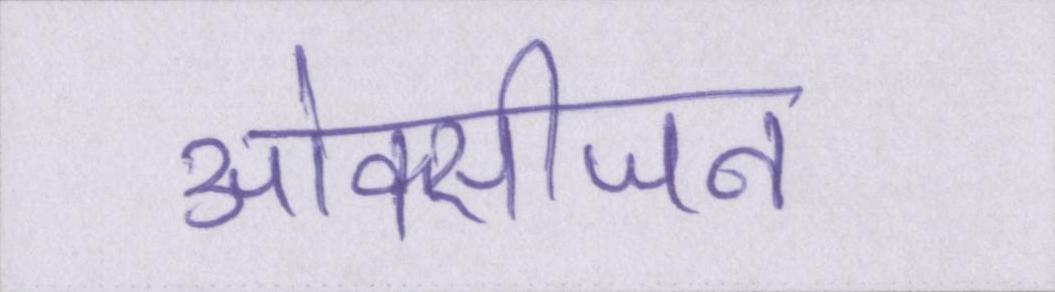 ओक्सीजन